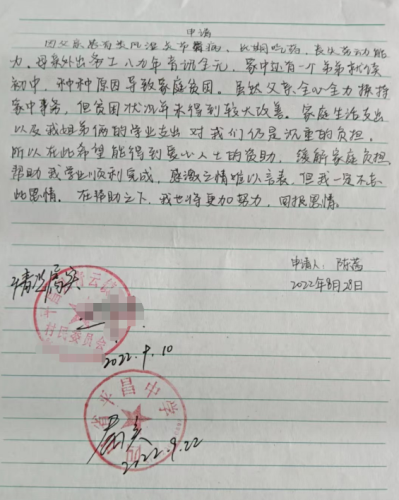 申请
因父亲患有类风湿关节前病，长期吃药，丧失劳动能
力，母亲外出务工八九年音讯全元，家中还有一个弟弟就读
初中，种种原因导致家庭贫困。虽然父亲全心全力操持
家中事务，但贫困状况并未得到较大改善。家庭生活支出
以及我姐弟俩的学业支出对我们仍是沉重的负担。
所以在此希望能得到爱心人士的资助，缓解家庭负担
帮助我学业顺利完成，感激之情难以言表，但我一定不忘
此恩情。在资助之下，我也将更加努力，回报恩情。
申请人：陈茜
2022年8月28日
情况属实
村民委员会
2022.9.10
省平昌中学
属实
2022.9.22